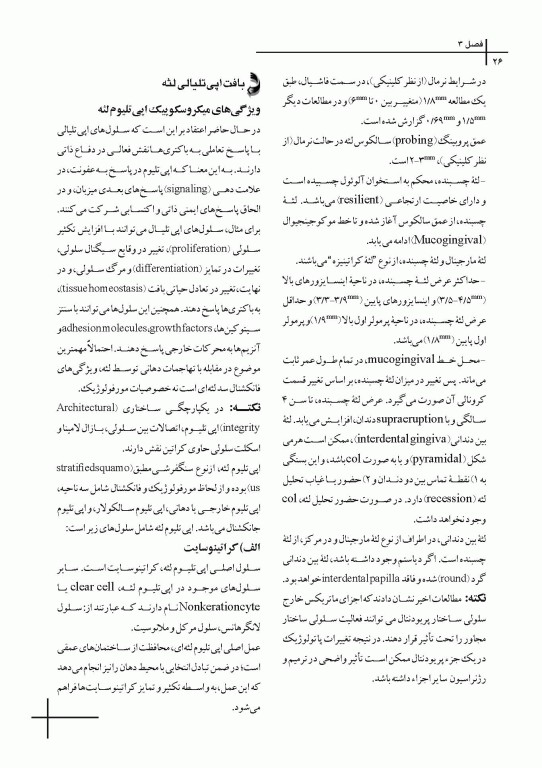 فصل ۳
۲۶
در شرایط نرمال (از نظر کلینیکی)، در سمت فاشیال، طبق
یک مطالعه ۱/۸mm (متغییر بین ۰ تا ۶mm) و در مطالعات دیگر
۱/۵mm و ۰/۶۹mm گزارش شده است.
عمق پروبینگ (probing) سالکوس لثه در حالت نرمال (از
نظر کلینیکی)، ۲-۳mm است.
-لثۀ چسبنده، محکم به استخوان آلوئول چسبیده است
و دارای خاصیت ارتجاعی (resilient) می‌باشد. لثۀ
چسبنده، از عمق سالکوس آغاز شده و تا خط موکوجینجیوال
(Mucogingival) ادامه می‌یابد.
لثۀ مارجینال و لثۀ چسبنده، از نوع "لثۀ کراتینیزه" می‌باشند.
-حداکثر عرض لثۀ چسبنده، در ناحیۀ اینسایزورهای بالا
(۳/۵-۴/۵mm) و اینسایزورهای پایین (۳/۳-۳/۹mm) و حداقل
عرض لثۀ چسبنده، در ناحیۀ پرمولر اول بالا (۱/۹mm) و پرمولر
اول پایین (۱/۸mm) می‌باشد.
-محل خط mucogingival، در تمام طول عمر ثابت
می‌ماند. پس تغییر در میزان لثۀ چسبنده، بر اساس تغییر قسمت
کرونالی آن صورت می‌گیرد. عرض لثۀ چسبنده، تا سن ۴
سالگی و با supraeruption دندان، افزایش می‌یابد. لثۀ
بین دندانی (interdental gingiva)، ممکن است هرمی
شکل (pyramidal) و یا به صورت col باشد، و این بستگی
به ۱) نقطۀ تماس بین دو دندان و ۲) حضور یا غیاب تحلیل
لثه (recession) دارد. در صورت حضور تحلیل لثه، col
وجود نخواهد داشت.
لثۀ بین دندانی، در اطراف از نوع لثۀ مارجینال و در مرکز، از لثۀ
چسبنده است. اگر دیاستم وجود داشته باشد، لثۀ بین دندانی
گرد (round) شده و فاقد interdental papilla خواهد بود.
نکته: مطالعات اخیر نشان دادند که اجزای ماتریکس خارج
سلولی ساختار پریودنتال می توانند فعالیت سلولی ساختار
مجاور را تحت تأثیر قرار دهند. در نتیجه تغییرات پاتولوژیک
در یک جزء پریودنتال ممکن است تأثیر واضحی در ترمیم و
رژنراسیون سایر اجزاء داشته باشد.
بافت اپی تلیالی لثه
ویژگی‌های میکروسکوپیک اپی تلیوم لثه
در حال حاضر اعتقاد بر این است که سلول‌های اپی تلیالی
با پاسخ تعاملی به باکتری‌ها نقش فعالی در دفاع ذاتی
دارند. به این معنا که اپی تلیوم در پاسخ به عفونت، در
علامت دهی (signaling) پاسخ‌های بعدی میزبان، و در
الحاق پاسخ‌های ایمنی ذاتی و اکتسابی شرکت می‌کنند.
برای مثال، سلول‌های اپی تلیال می‌توانند با افزایش تکثیر
سلولی (proliferation)، تغییر در وقایع سیگنال سلولی،
تغییرات در تمایز (differentiation) و مرگ سلولی، و در
نهایت، تغییر در تعادل حیاتی بافت (tissue homeostasis)،
به باکتری‌ها پاسخ دهند. همچنین این سلول‌ها می‌توانند با سنتز
سیتوکین‌ها، adhesion molecules, growth factors و
آنزیم‌ها به محرکات خارجی پاسخ دهند. احتمالاً مهمترین
موضوع در مقابله با تهاجمات دهانی توسط لثه، ویژگی‌های
فانکشنال سد لثه‌ای است نه خصوصیات مورفولوژیک.
نکته: در یکپارچگی ساختاری (Architectural
integrity) اپی تلیوم، اتصالات بین سلولی، بازال لامینا و
اسکلت سلولی حاوی کراتین نقش دارند.
اپی تلیوم لثه، از نوع سنگفرشی مطبق (stratified squamo
us) بوده و از لحاظ مورفولوژیک و فانکشنال شامل سه ناحیه،
اپی تلیوم خارجی یا دهانی، اپی تلیوم سالکولار، و اپی تلیوم
جانکشنال می‌باشد. اپی تلیوم لثه شامل سلول‌های زیر است:
الف) کراتینوسایت
سلول اصلی اپی تلیوم لثه، کراتینوسایت است. سایر
سلول‌های موجود در اپی تلیوم لثه، clear cell یا
Nonkerationcyte نام دارند که عبارتند از: سلول
لانگرهانس، سلول مرکل و ملانوسیت.
عمل اصلی اپی تلیوم لثه‌ای، محافظت از ساختمان‌های عمقی
است؛ در ضمن تبادل انتخابی با محیط دهان را نیز انجام می‌دهد
که این عمل، به واسطه تکثیر و تمایز کراتینوسایت‌ها فراهم
می‌شود.